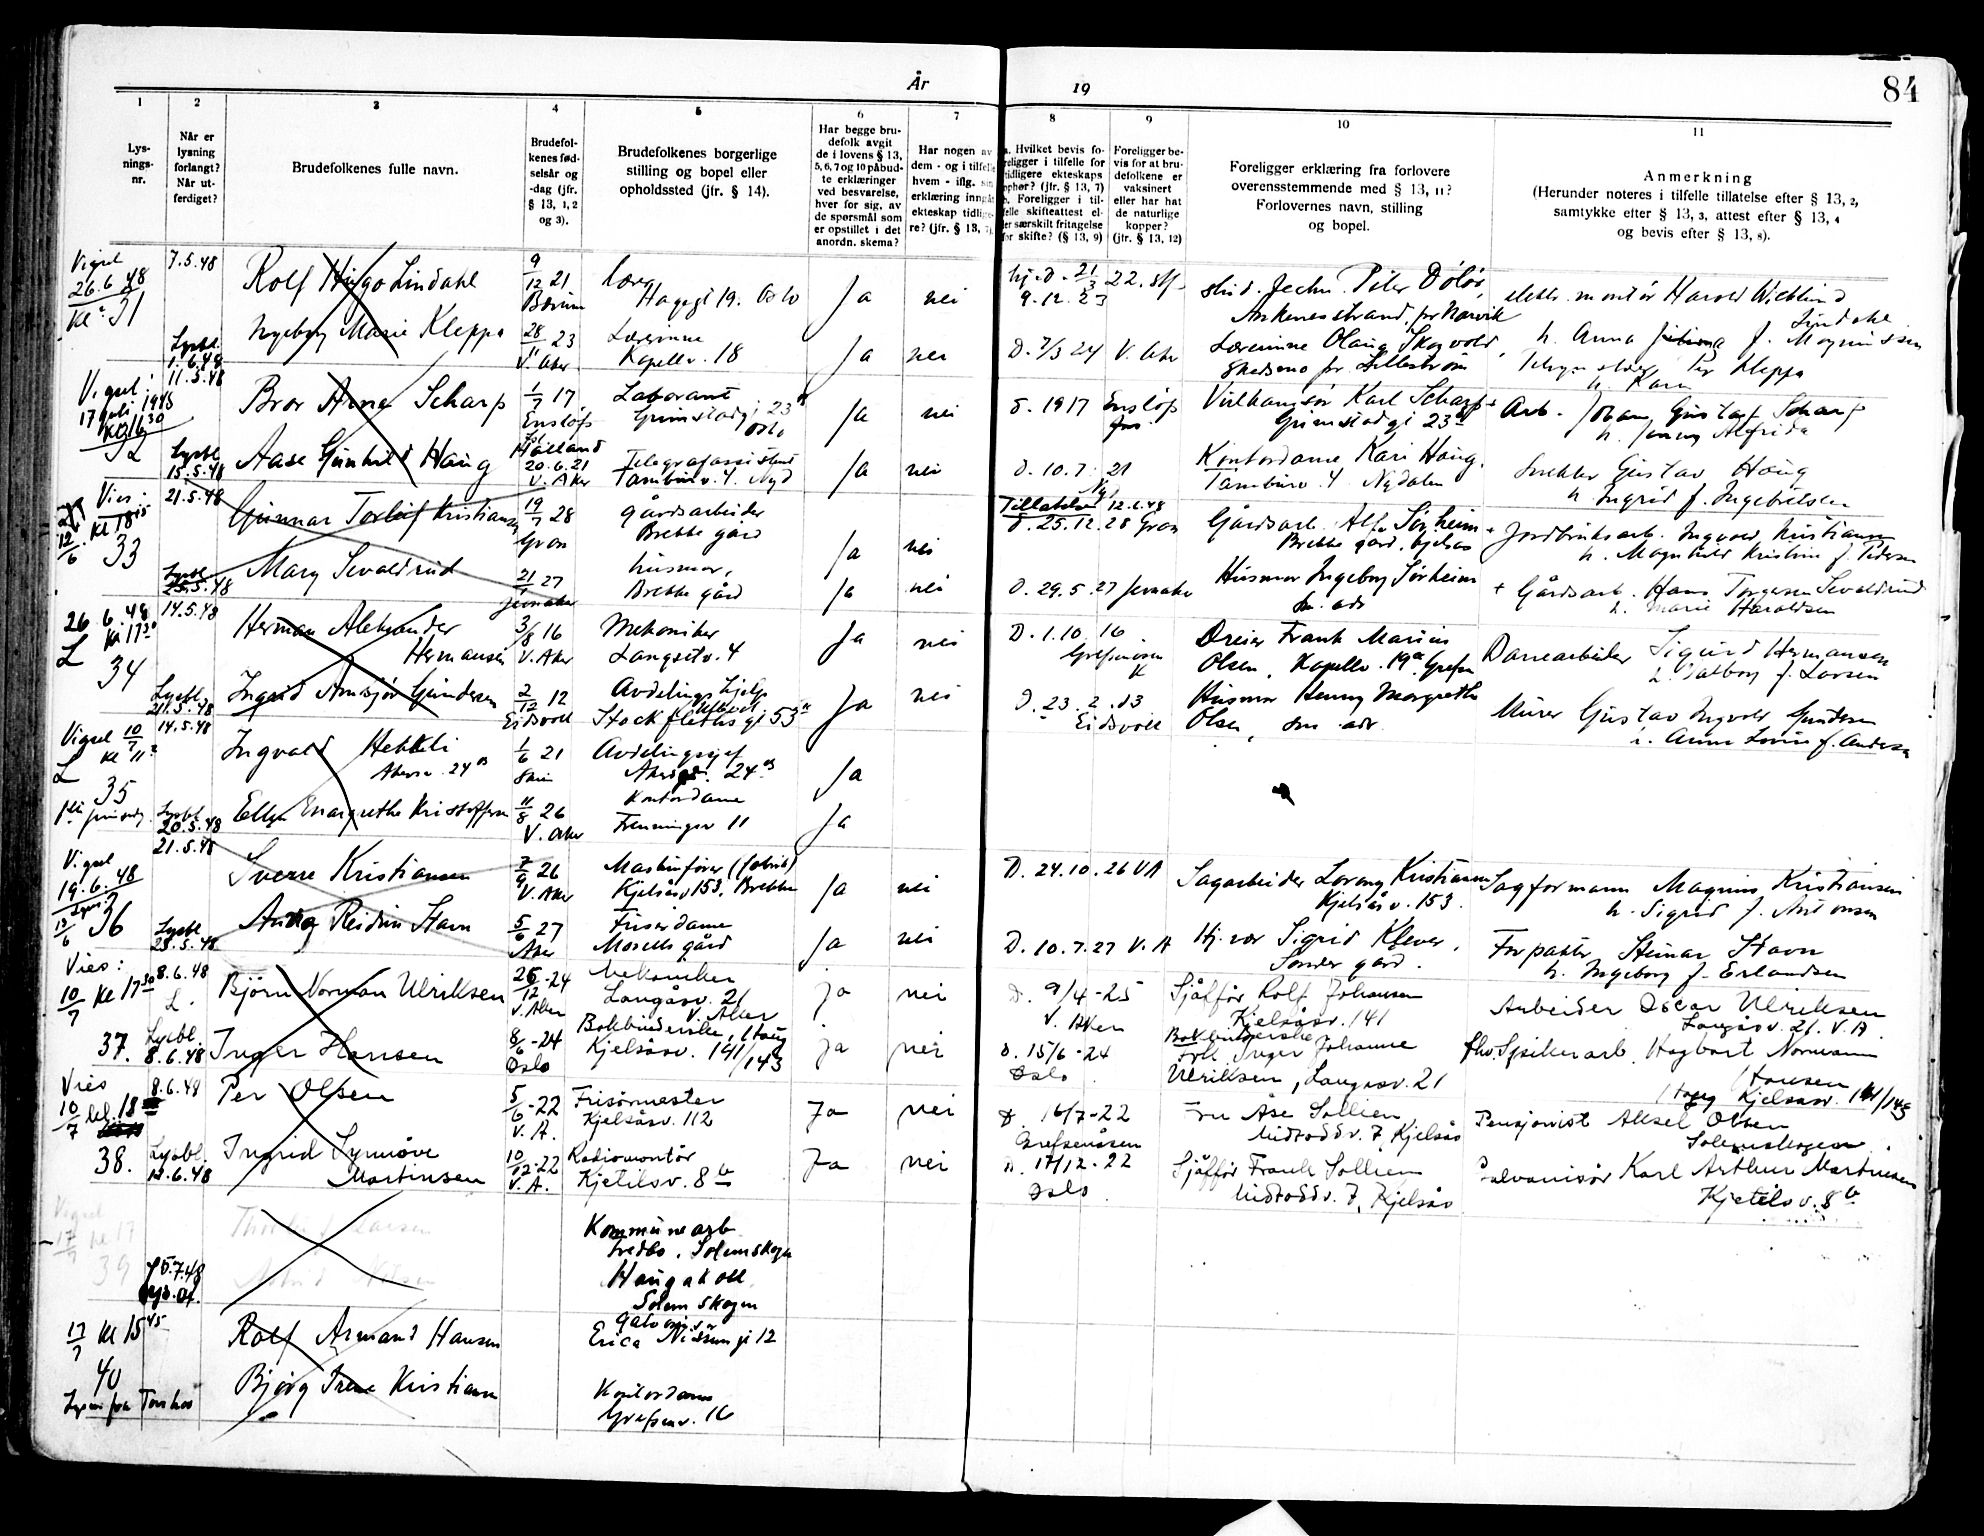 År
19
84
1
2
3
4
5
6
7
8
9
10
11
Lys-
nings-
nr.
Når er
lysning
forlangt?
Når ut-
ferdiget?
Brudefolkenes fulle navn.
Brudefol-
kenes fød-
selsår og
-dag (jfr.
§ 13, 1, 2
og 3).
Brudefolkenes borgerlige
stilling og bopel eller
opholdssted (jfr. § 14).
Har begge bru-
defolk avgit
de i lovens § 13,
5, 6, 7 og 10 påbud-
te erklæringer
ved besvarelse,
hver for sig, av
de spørsmål som
er opstillet i det
anordn. skema?
Har nogen av
dem - og i tilfelle
hvem - iflg. sin
erklæring inngåt
ekteskap tidlige-
re? (jfr. § 13, 7).
a. Hvilket bevis fo-
religger i tilfelle for
tidligere ekteskaps
ophør? (jfr. § 13, 7)
b. Foreligger i til-
felle skifteattest el-
ler særskilt fritagelse
for skifte? (§ 13, 9)
Foreligger be-
vis for at bru-
defolkene er
vaksinert
eller har hat
de naturlige
kopper?
(jfr. § 13, 12)
Foreligger erklæring fra forlovere
overensstemmende med § 13, 11?
Forlovernes navn, stilling
og bopel.
Anmerkning
(Herunder noteres i tilfelle tillatelse efter § 13, 2,
samtykke efter § 13, 3, attest efter § 13, 4
og bevis efter § 13, 8).
Vigsel 26.6.48
31
7.5.48
Rolf Hugo Lindahl
9/12 21
Bærum
Hagegt 19. Oslo
Ja nei
9.12.23
Ankenesstrand pr Narvik
elektr. montør Harold Wicklund
Lindahl
Lysbl.
1.6.48
Ingeborg Marie Kleppa
28/11 23
V. Aker
Lærerinne
Kapellv. 18
Ja nei
D. 7/3 24 V. Aker
Lærerinne Olaug Skogvold,
Skedsmo pr Lillestrøm
h. Anna f. Magnussen
Per Kleppa
h. Kari
Vigsel:
17 juli 1948
kl 16 30
32
11.5.48
Bror Arne Scharp
1/7 17
Enslöf
Halland
Laborant
Grimstadgt 23
Oslo
Ja nei
F. 1917 Enslöf
Karl Scharp
Grimstadgt 23
Arb. Johan Gustaf Scharp
h. Jenny Alfrida
Lysbl
15.5.48
Aase Gunhild Haug
20.6.21
V. Aker
Telegrafassistent
Tambürv. 4. Nyd
Ja nei
D. 10.7. 21
Kontordame Kari Haug.
Tambürv. 4 Nydalen
Snekker Gustav Haug
h. Ingrid f. Ingebretsen
Vies:
12/6 kl 18 15
33
21.5.48
Gunnar Torleif Kristiansen
19/7 28
Gran
gårdsarbeider
Brekke gård
Ja nei
Tillatelse 12.6.48
F. 25.12.28 Gran
Gårdsarb. Alf Sørheim
Brekke gård, Kjelsås
Jordbruksarb. Ingvald Kristiansen
h. Magnhild Kristine f. Pedersen
Lysbl
25.5.48
Mary Sevaldrud
21/5 27
Jevnaker
husmor,
Brekke gård
Ja nei
D. 29.5.27 Jevnaker
Husmor Ingeborg Sørheim
Sm. adr
+ Gårdsarb. Hans Torgersen Sevaldrud
h. Marie Haraldsen
26 6.48
kl 17 30
L
34
14.5.48
Herman Aleksander
Hermansen
3/8 16
V. Aker
Mekaniker
Langsetv. 4
Ja nei
D. 1.10.16
Grefsenåsen
K
Dreier Frank Marius
Olsen, Kapellv. 19a Grefsen
Dannearbeider Sigurd Hermansen
h. Valborg f. Larsen
Lysbl.
21.5.48
Ingrid Annsjør Gundersen
2/12 12
Eidsvoll
Avdelingshjelp
Stockflethsgt 53
Ja nei
D. 23.2.13
Eidsvoll
Husmor Henny Margrethe
Olsen, sm. adr
Murer Gustav Ingvald Gundersen
h. Anna Lovise f. Andersen
Vigsel 10/7
kl 11
L
35
14.5.48
Ingvald Hekkli
Akersv. 24
1/6 21
Skien
Avdelingssjef
Akersv. 24
Ja
Lysbl
20.5.48
Ellen Margrethe Kristoffersen
11/8 26
V. Aker
Kontordame
Frenningsv 11
Ja
Vigsel
19.6.48
36
21.5.48
Sverre Kristiansen
7/9 26
V. Aker
Maskinfører (fabrikk)
Kjelsåsv 153. Brekke
Ja nei
D. 24.10.26 VA
Sagarbeider Lorang Kristiansen
Kjelsåsv. 153.
Sagformann Magnus Kristiansen
h. Sigrid f. Antonsen
Lysbl
25.5.48
Reidun Stavn
5/6 27
Aker
Friserdame
Mosells gård
Ja nei
D. 10.7.27 V. A
Hj.vær Sigrid Klever,
Sønder gård.
Forpakter Steinar Stavn
h. Ingeborg f. Erlandsen
Vies:
10/7 kl 17 30
37.
8.6.48
L.
Bjørn Norman Ulriksen
26/12-24
V. Aker
Mekaniker
Langåsv. 21
V. Aker
ja nei
D. 9/4-25
V. Aker
Sjåfør Rolf Johansen
Kjelsåsv. 141
Arbeider Oscar Ulriksen
Langåsv. 21. V.A.
Lysbl.
8.6.48
Inger Hansen
8/6-24
Oslo
Bokbinderske, Haug
Kjelsåsv. 141/143
ja nei
D. 15/6-24
Oslo
Bokbinderske
Frk Inger Johanne
Ulriksen, Langåsv. 21
fhv. Spikerarb. Hagbart Normann
Hansen
Haug Kjelsåsv. 141/143
Vies
10/7 kl. 18
38.
8.6.48
Per Olsen
5/6-22
V. A.
Frisørmester
Kjelsåsv. 112
Ja nei
D. 16/7-22
Grefsenåsen
Fru Åse Sollien
Midtoddv. 7 Kjelsås
Pensjonist Aksel Olsen
Solemskogen.
Lysbl.
12.6.48
Ingrid Synnøve
Martinsen
10/12-22
V. A.
Radiomontør
Kjetilsv. 8b
Ja nei
D. 17/12-22
Oslo.
Sjåfør Frank Sollien
Midtoddv. 7, Kjelsås
Galvanisør Karl Arthur Martinsen
Kjetilsv. 8b
Vigsel
17/7 kl 17
39
Larsen
Kommunearb
Fredbo, Solemskogen
Haugakoll
Solemskogen
17/7 kl 15 45
40
Rolf Armand Hansen
Galvanisør
Erica Nissensgt 12
Bjørg Irene Kristiansen
Kontordame
Grefsenv. 16
Lysn fra Torshov